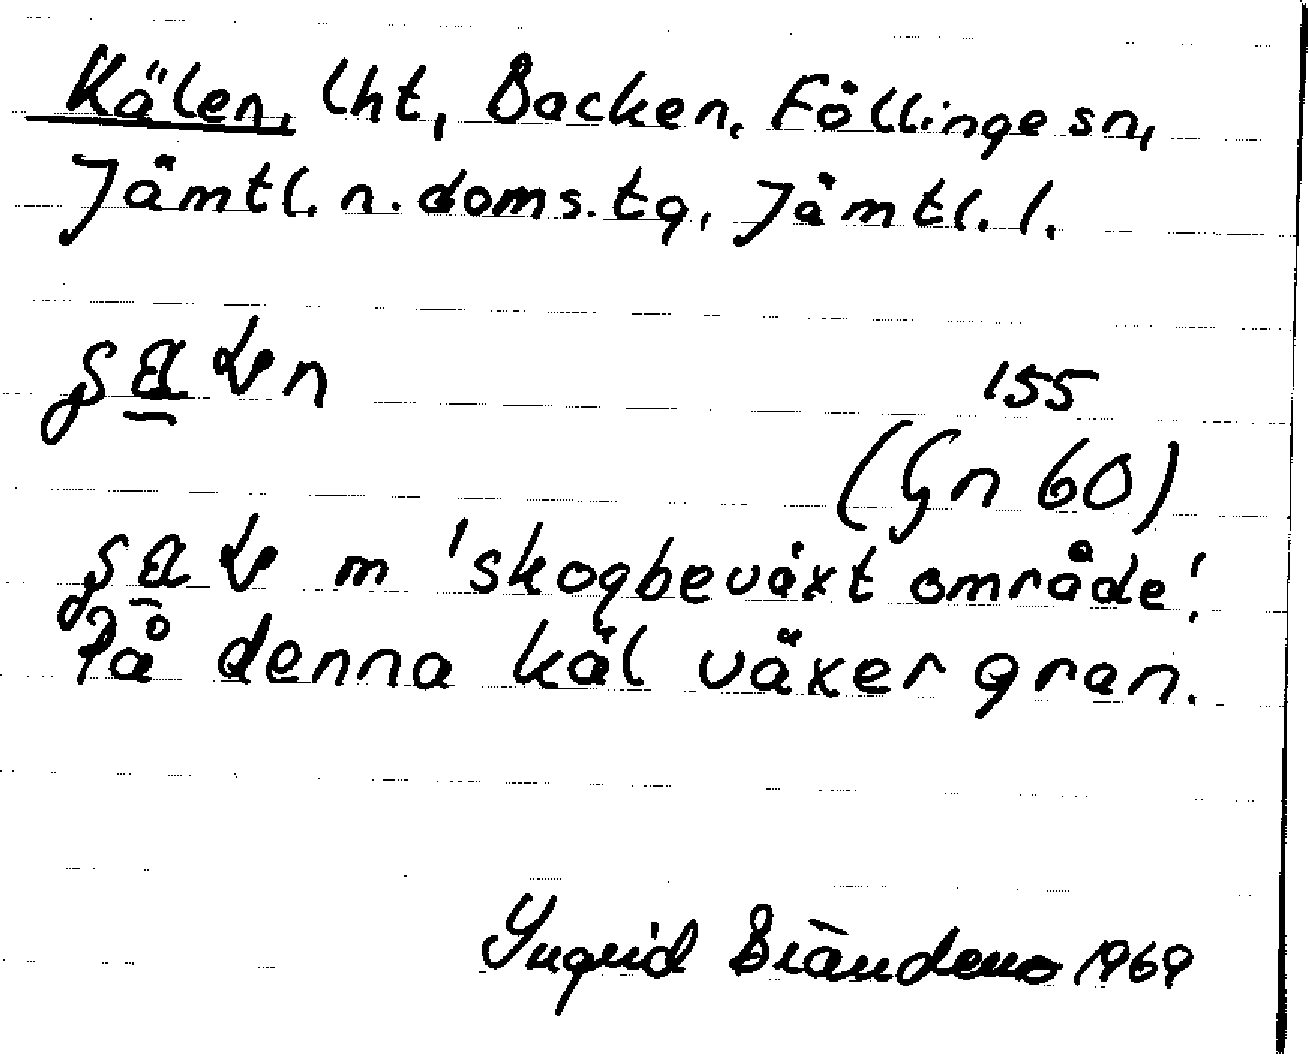 Kälen, lht, Backen, Föllinge sn,
Jämtl. n. doms. tg, Jämtl. l.
155
(Gn 60)
m 'skogbeväxt område'.
På denna käl växer gran.
Ingrid Brändemo 1969